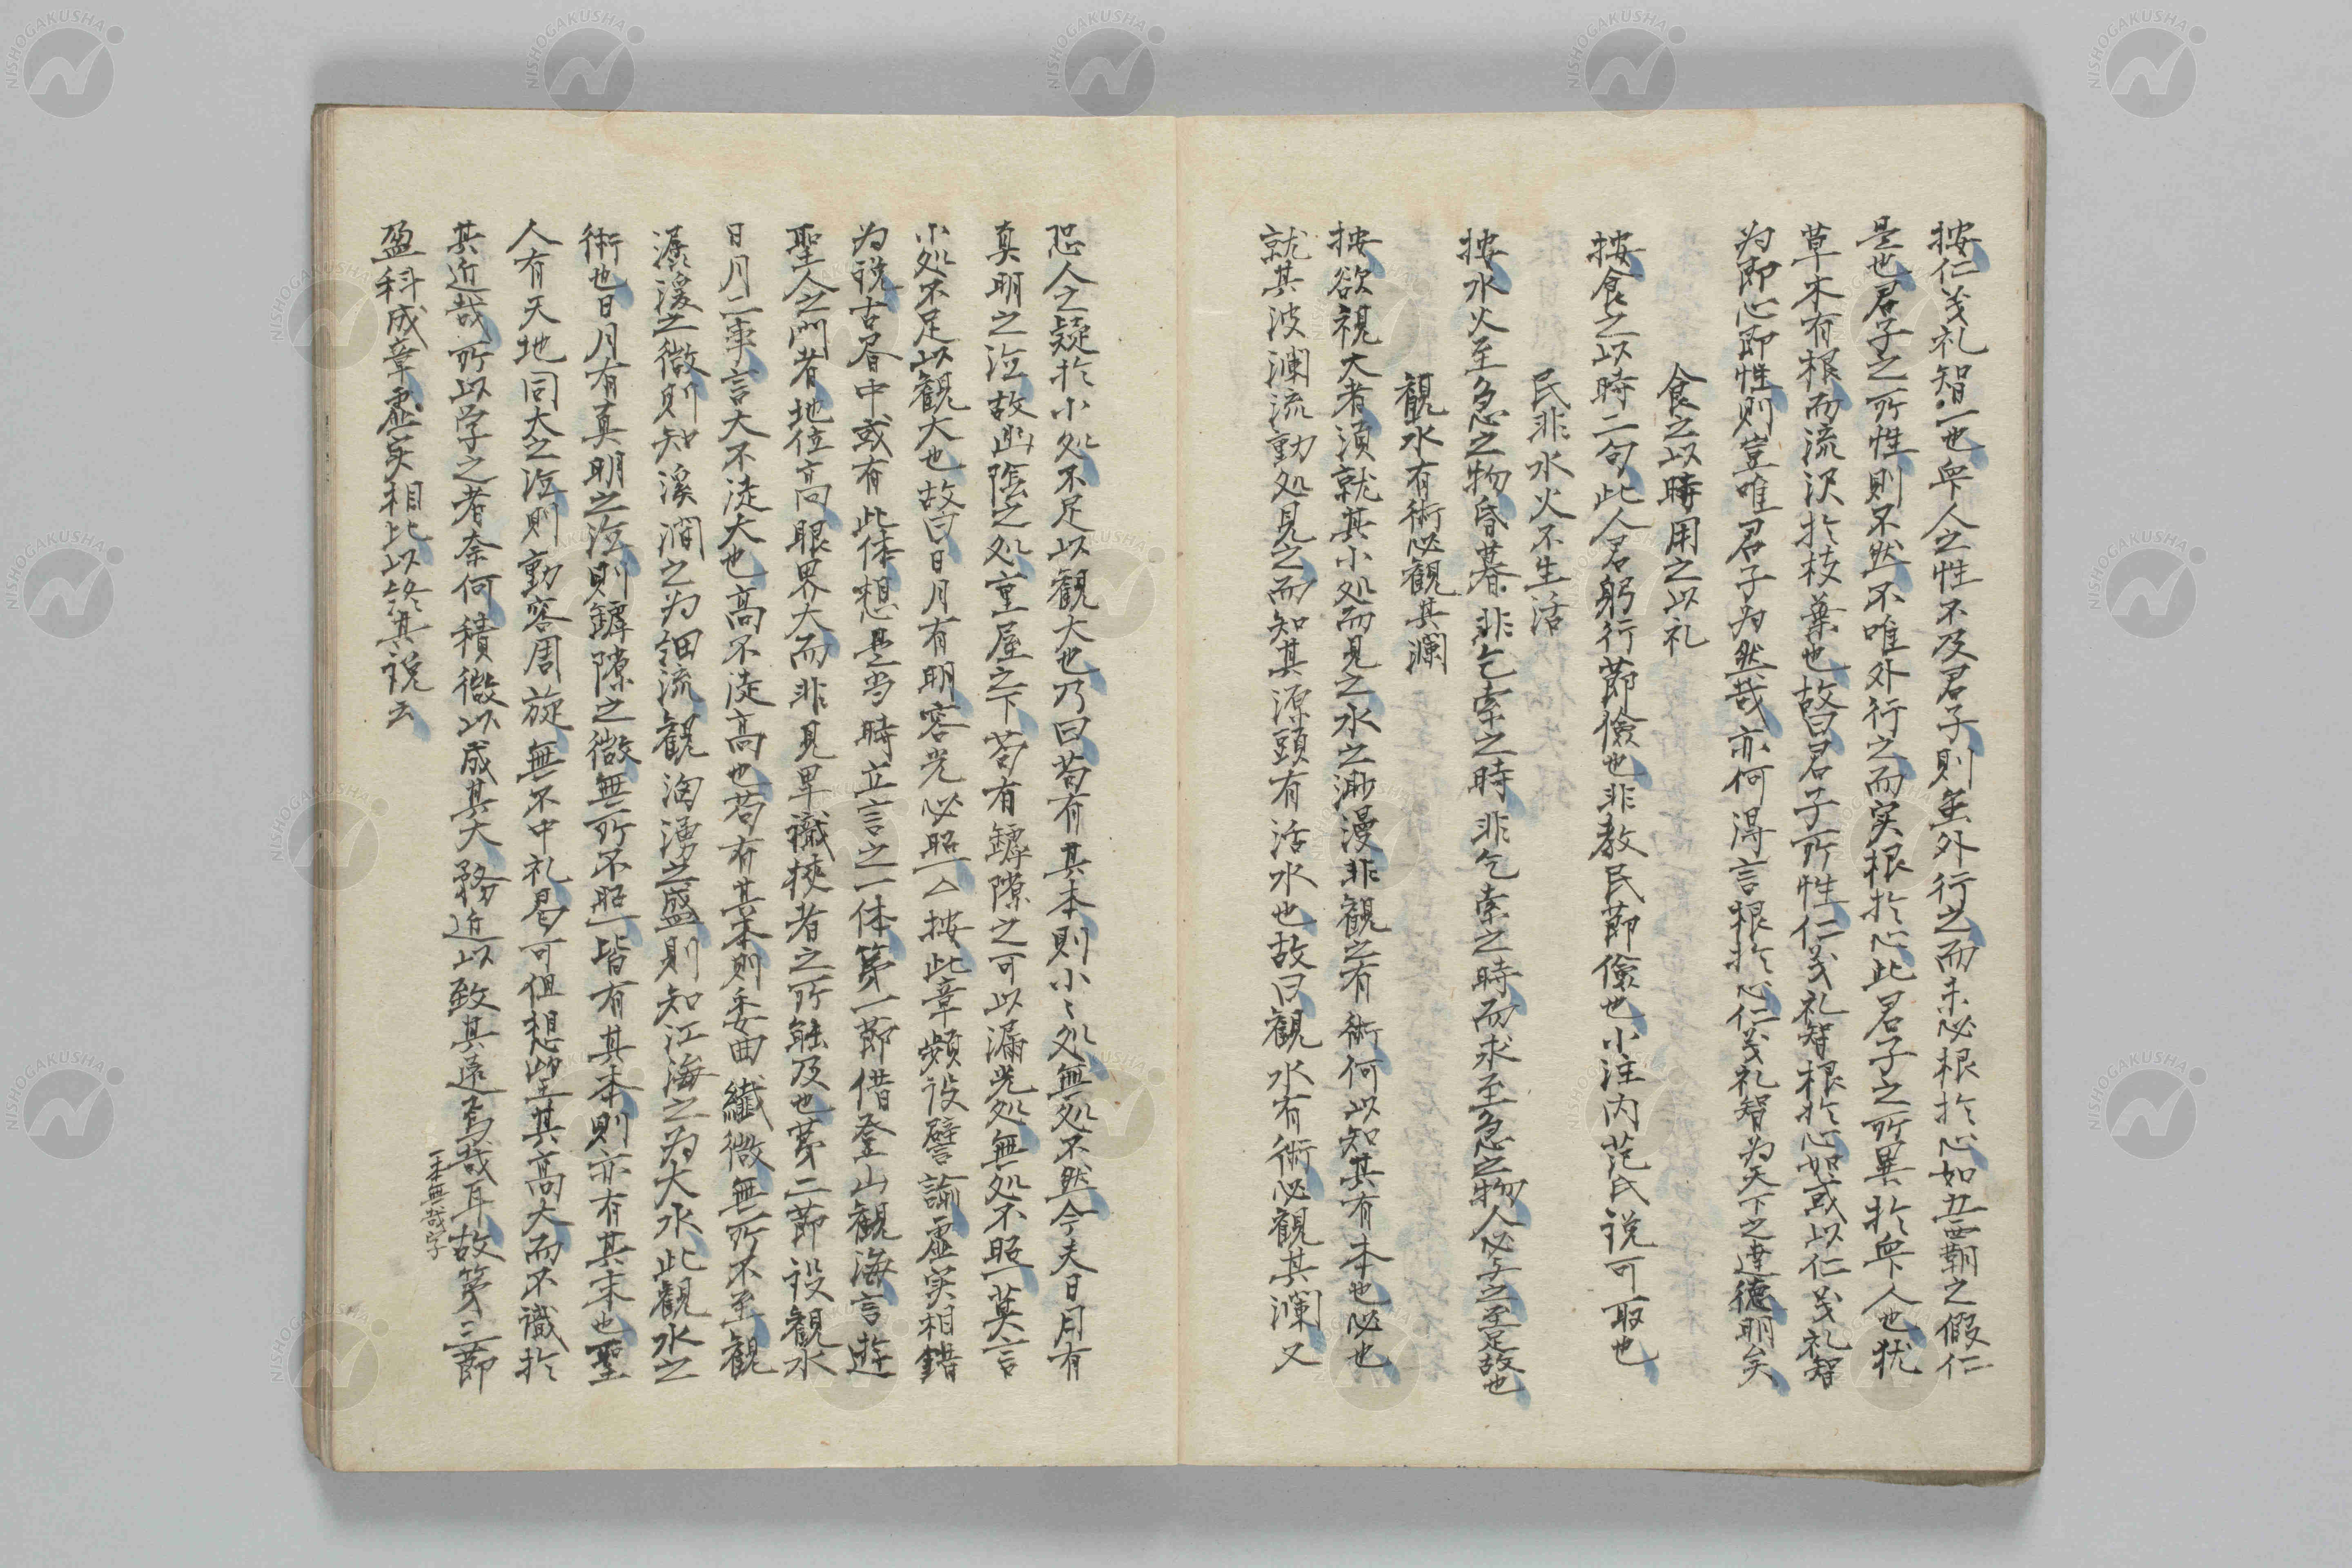 按仁义礼智一也衆人之性不及君子則虽外行之而未必根於心如五覇之假仁
是也君子之所性則不然不唯外行之而实根於心此君子之所異於衆人也犹
草木有根而流沢於枝葉也故曰君子所性仁义礼智根於心如或以仁义礼智
为即心即性則豈唯君子为然哉亦何得言根於心仁义礼智为天下之達徳明矣
食之以時用之以礼
按食之以時二句此人君躬行節儉也非教民節儉也小注内范氏説可取也
民非水火不生活
按水火至急之物昏暮非乞索之時非乞索之時而求至急之物人必与之至足故也
観水有術必観其瀾
按欲視大者須就其小処而見之水之渺漫非観之有術何以知其有本也必也
就其波瀾流動処見之而知其源頭有活水也故曰観水有術必観其瀾又
恐人之疑於小処不足以観大也乃曰苟有其本則小〻処無処不然今夫日月有
真明之泣故幽陰之処重屋之下苟有罅隙之可以漏光処無処不照莫言
小処不足以観大也故曰日月有明容光必照△按此章頻設譬諭虚实相錯
为説古昬中或有此体想是当時立言之一体第一節借登山観海言遊
聖人之門者地位高眼界大而非見卑識狹者之所能及也第二節設観水
日月二事言大不徒大也高不徒高也苟有其本則委曲纖微無所不至観
潺湲之微則知溪澗之为細流観洶湧之盛則知江海之为大水此観水之
術也日月有真明之泣則罅隙之微無所不照皆有其本則亦有其末也聖
人有天地同大之泣則動容周旋無不中礼曷可但想望其高大而不識於
其近哉所以学之者奈何積微以成其大務近以致其遠焉哉耳故第三節
一本無哉字
盈科成章虚实相比以終其説云
NISHOGAKUSHA